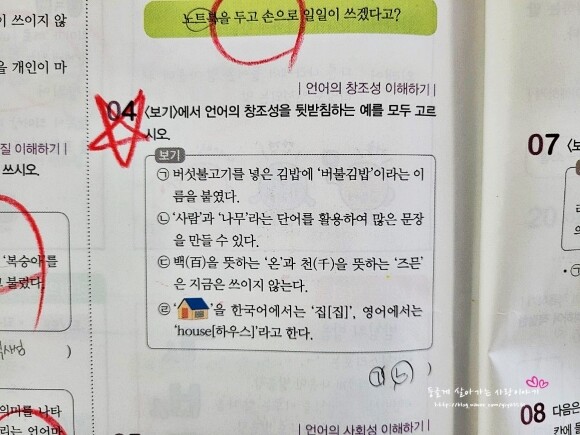 노트북을 두고 손으로 일일이 쓰겠다고?
이 쓰이지 않
을 개인이 마
질 이해하기|
쓰시오.
'복숭아'를
고 불렀다.
)
의미를 나타
리는 언어마
|언어의 창조성 이해하기|
04 <보기>에서 언어의 창조성을 뒷받침하는 예를 모두 고르
시오.
보기
㉠ 버섯불고기를 넣은 김밥에 '버불김밥'이라는 이
름을 붙였다.
㉡ '사람'과 '나무'라는 단어를 활용하여 많은 문장
을 만들 수 있다.
㉢ 백(百)을 뜻하는 '온'과 천(千)을 뜻하는 '즈믄'
은 지금은 쓰이지 않는다.
㉣ ' '을 한국어에서는 '집[집]', 영어에서는
'house[하우스]'라고 한다.
㉠ ㉡ )
|언어의 사회성 이해하기|
07 <보
08 다음은
칸에 들
둥글게 살아가는 사랑이야기